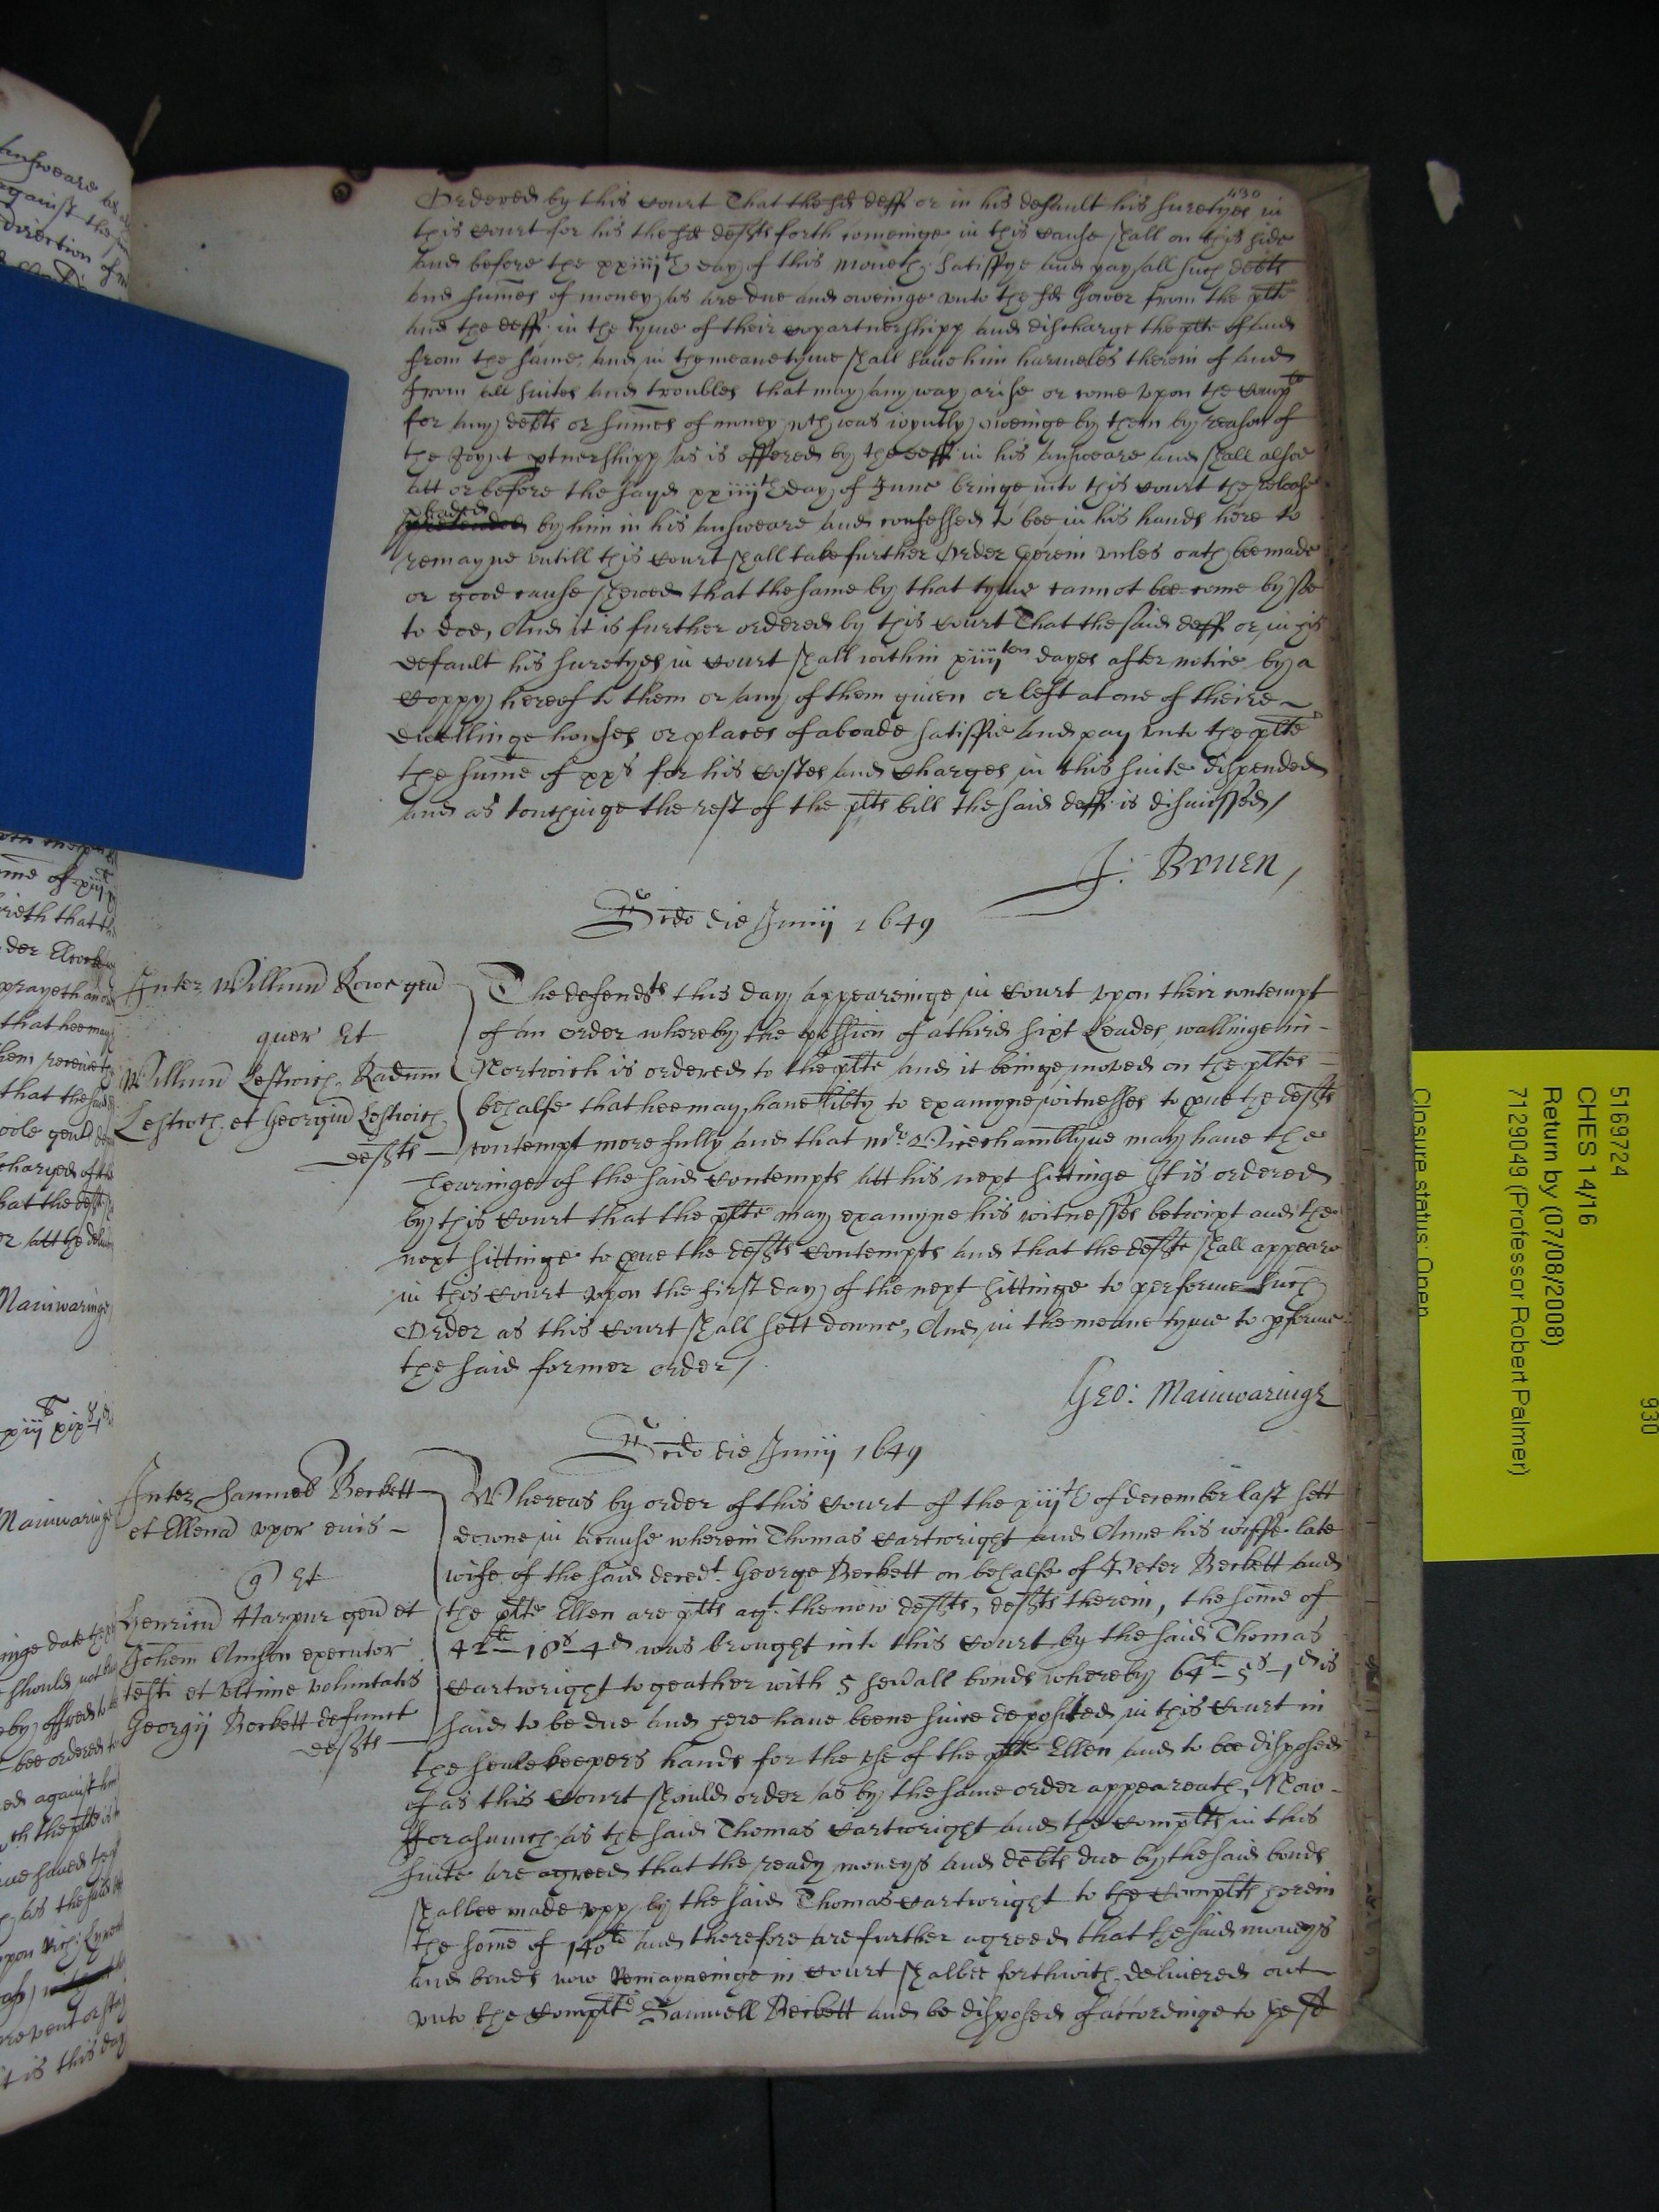 430
Ordered by this Court That the sd deff or in his default his suretyes in
this Court for his the sd defts forth comeinge in this cause shall on this side
and before the xxiiijth day of this moneth satisfye and pay all such debts
and sumes of money as are due and oweinge unto the sd Gower from the plte
and the deff: in the tyme of their Copartnershipp and discharge the plte of and
from the same, and in the meane tyme shall save him harmeles therein of and
from all suites and troubles that may any way arise or come upon the Compt
for any debts or sumes of money wch was ioyntly oweinge by them by reason of
the Joynt ptnershipp as is offered by the deff: in his answeare and shall alsoe
att or before the sayd xxiiijth day of June bringe into this Court the release
pleaded
by him in his answeare and confessed to bee in his hands here to
remayne untill this Court shall take further Order herein unles oath bee made
or good cause shewed that the same by that tyme cannot bee come by soe
to doe, And it is further ordered by this Court That the said deff or in his
default his suretyes in Court shall within xiiijten dayes after notice by a
Coppy hereof to them or any of them given or left at one of theire
dwellinge houses or places of aboade satisfie and pay unto the plte
the sume of xxs for his Costes and Charges in this suite dispended
and as touchinge the rest of the plts bill the said deff: is dismissed /
J: Bruen,
die Junij 1649
Inter Willimu Rowe gen
quer Et
Willimu Leftwich Radum
Leftwich et Georgiu Leftwich
defts
The defendts this day appeareinge in Court upon their contempt
of an order whereby the possion of a third sixt Leades wallinge in
Northwich is ordered to the plte and it beinge moved on the pltes
behalfe that hee may have libty to examyne witnesses to prue the defts
contempt more fully and that mr Vicechamblyne may have the
hearinge of the said Contempts att his next sittinge It is ordered
by this Court that the plte may examyne his witnesses betwixt and the
next sittinge to prue the defts Contempts and that the defts shall appeare
in this Court upon the first day of the next sittinge to performe such
Order as this Court shall sett downe, And in the meane tyme to pforme
the said former order /
Geo: Mainwaringe
die Junij 1649
Inter Samuel Beckett
et Ellena uxor eius
q Et
Henricu Harpur gen et
Johem Amson executor
testi et ultime voluntatis
Georgij Beckett defunct
defts
Whereas by order of this Court of the xiijth of december last sett
downe in a cause wherein Thomas Cartwright and Anne his wiffe late
wife of the said deced. George Beckett on behalfe of Peter Beckett and
the plte Ellen are plts agt. the now defts, defts therein, the some of
42li 18s 4d was brought into this Court by the said Thomas
Cartwright togeather with 5 seuall bonds whereby 64li 5s 1d is
said to be due and here have beene since deposited in this Court in
the sealekeepers hands for the use of the plte Ellen and to bee disposed
of as this Court should order as by the same order appeareath, Now
fforasmuch as the said Thomas Cartwright and the Complts in this
suite are agreed that the ready moneys and debts due by the said bonds
shalbee made upp by the said Thomas Cartwright to the Complts herein
the some of 140li and therefore are further agreed that the said moneys
and bonds now Remayneinge in Court shalbee forthwith delivered out
unto the Complte Samuell Beckett and be disposed of accordinge to
5169724
CHES 14/16
Return by (07/08/2008)
7129049 (Professor Robert Palmer)
Closure status: Open
930